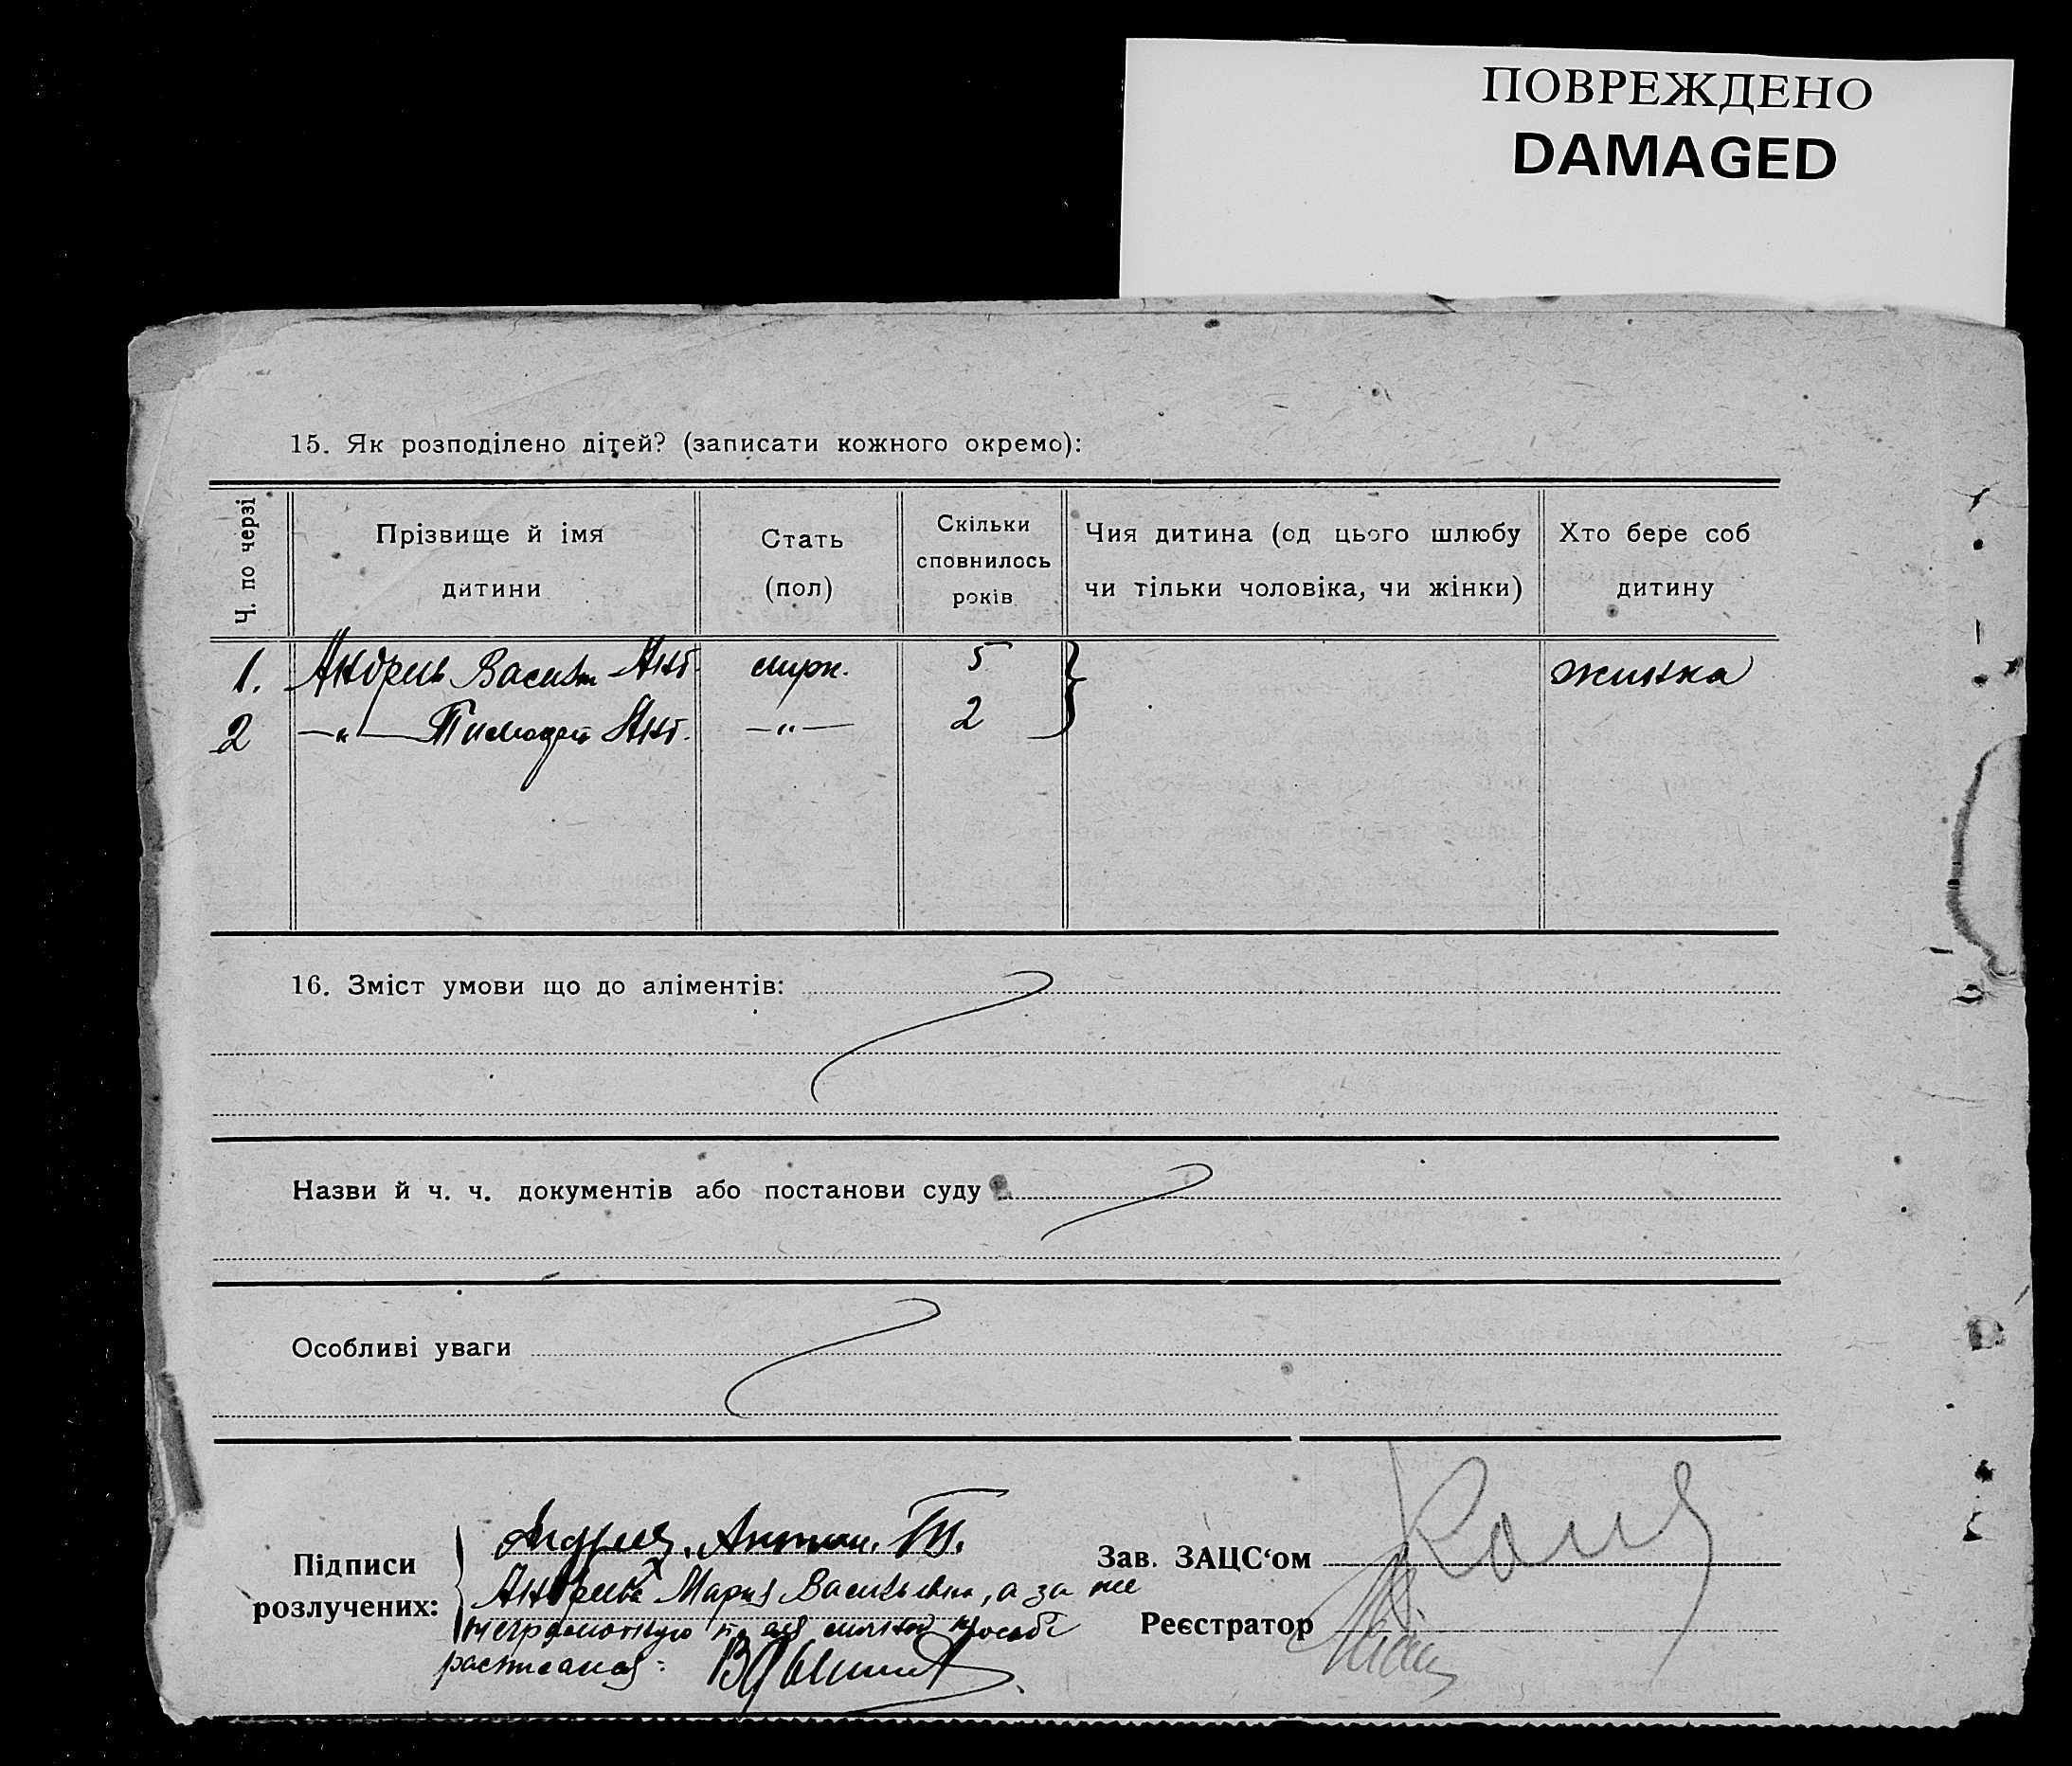 ПОВРЕЖДЕНО
DAMAGED
15. Як розподілено дітей? (записати кожного окремо):
Ч. по черзі
Прізвище й імя
дитини
Стать
(пол)
Скільки
сповнилось
років
Чия дитина (од цього шлюбу
чи тільки чоловіка, чи жінки)
Хто бере соб
дитину
1. Василь Ант 5 жинка
2 —„— Ант. —„— 2
16. Зміст умови що до аліментів:
Назви й ч. ч. документів або постанови суду
Особливі уваги
Підписи
розлучених:
Антон. Т.
Мария Васильевна, а за нее
неграмотную по ея личной просьбе
расписался:
Зав. ЗАЦС‘ом
Реєстратор